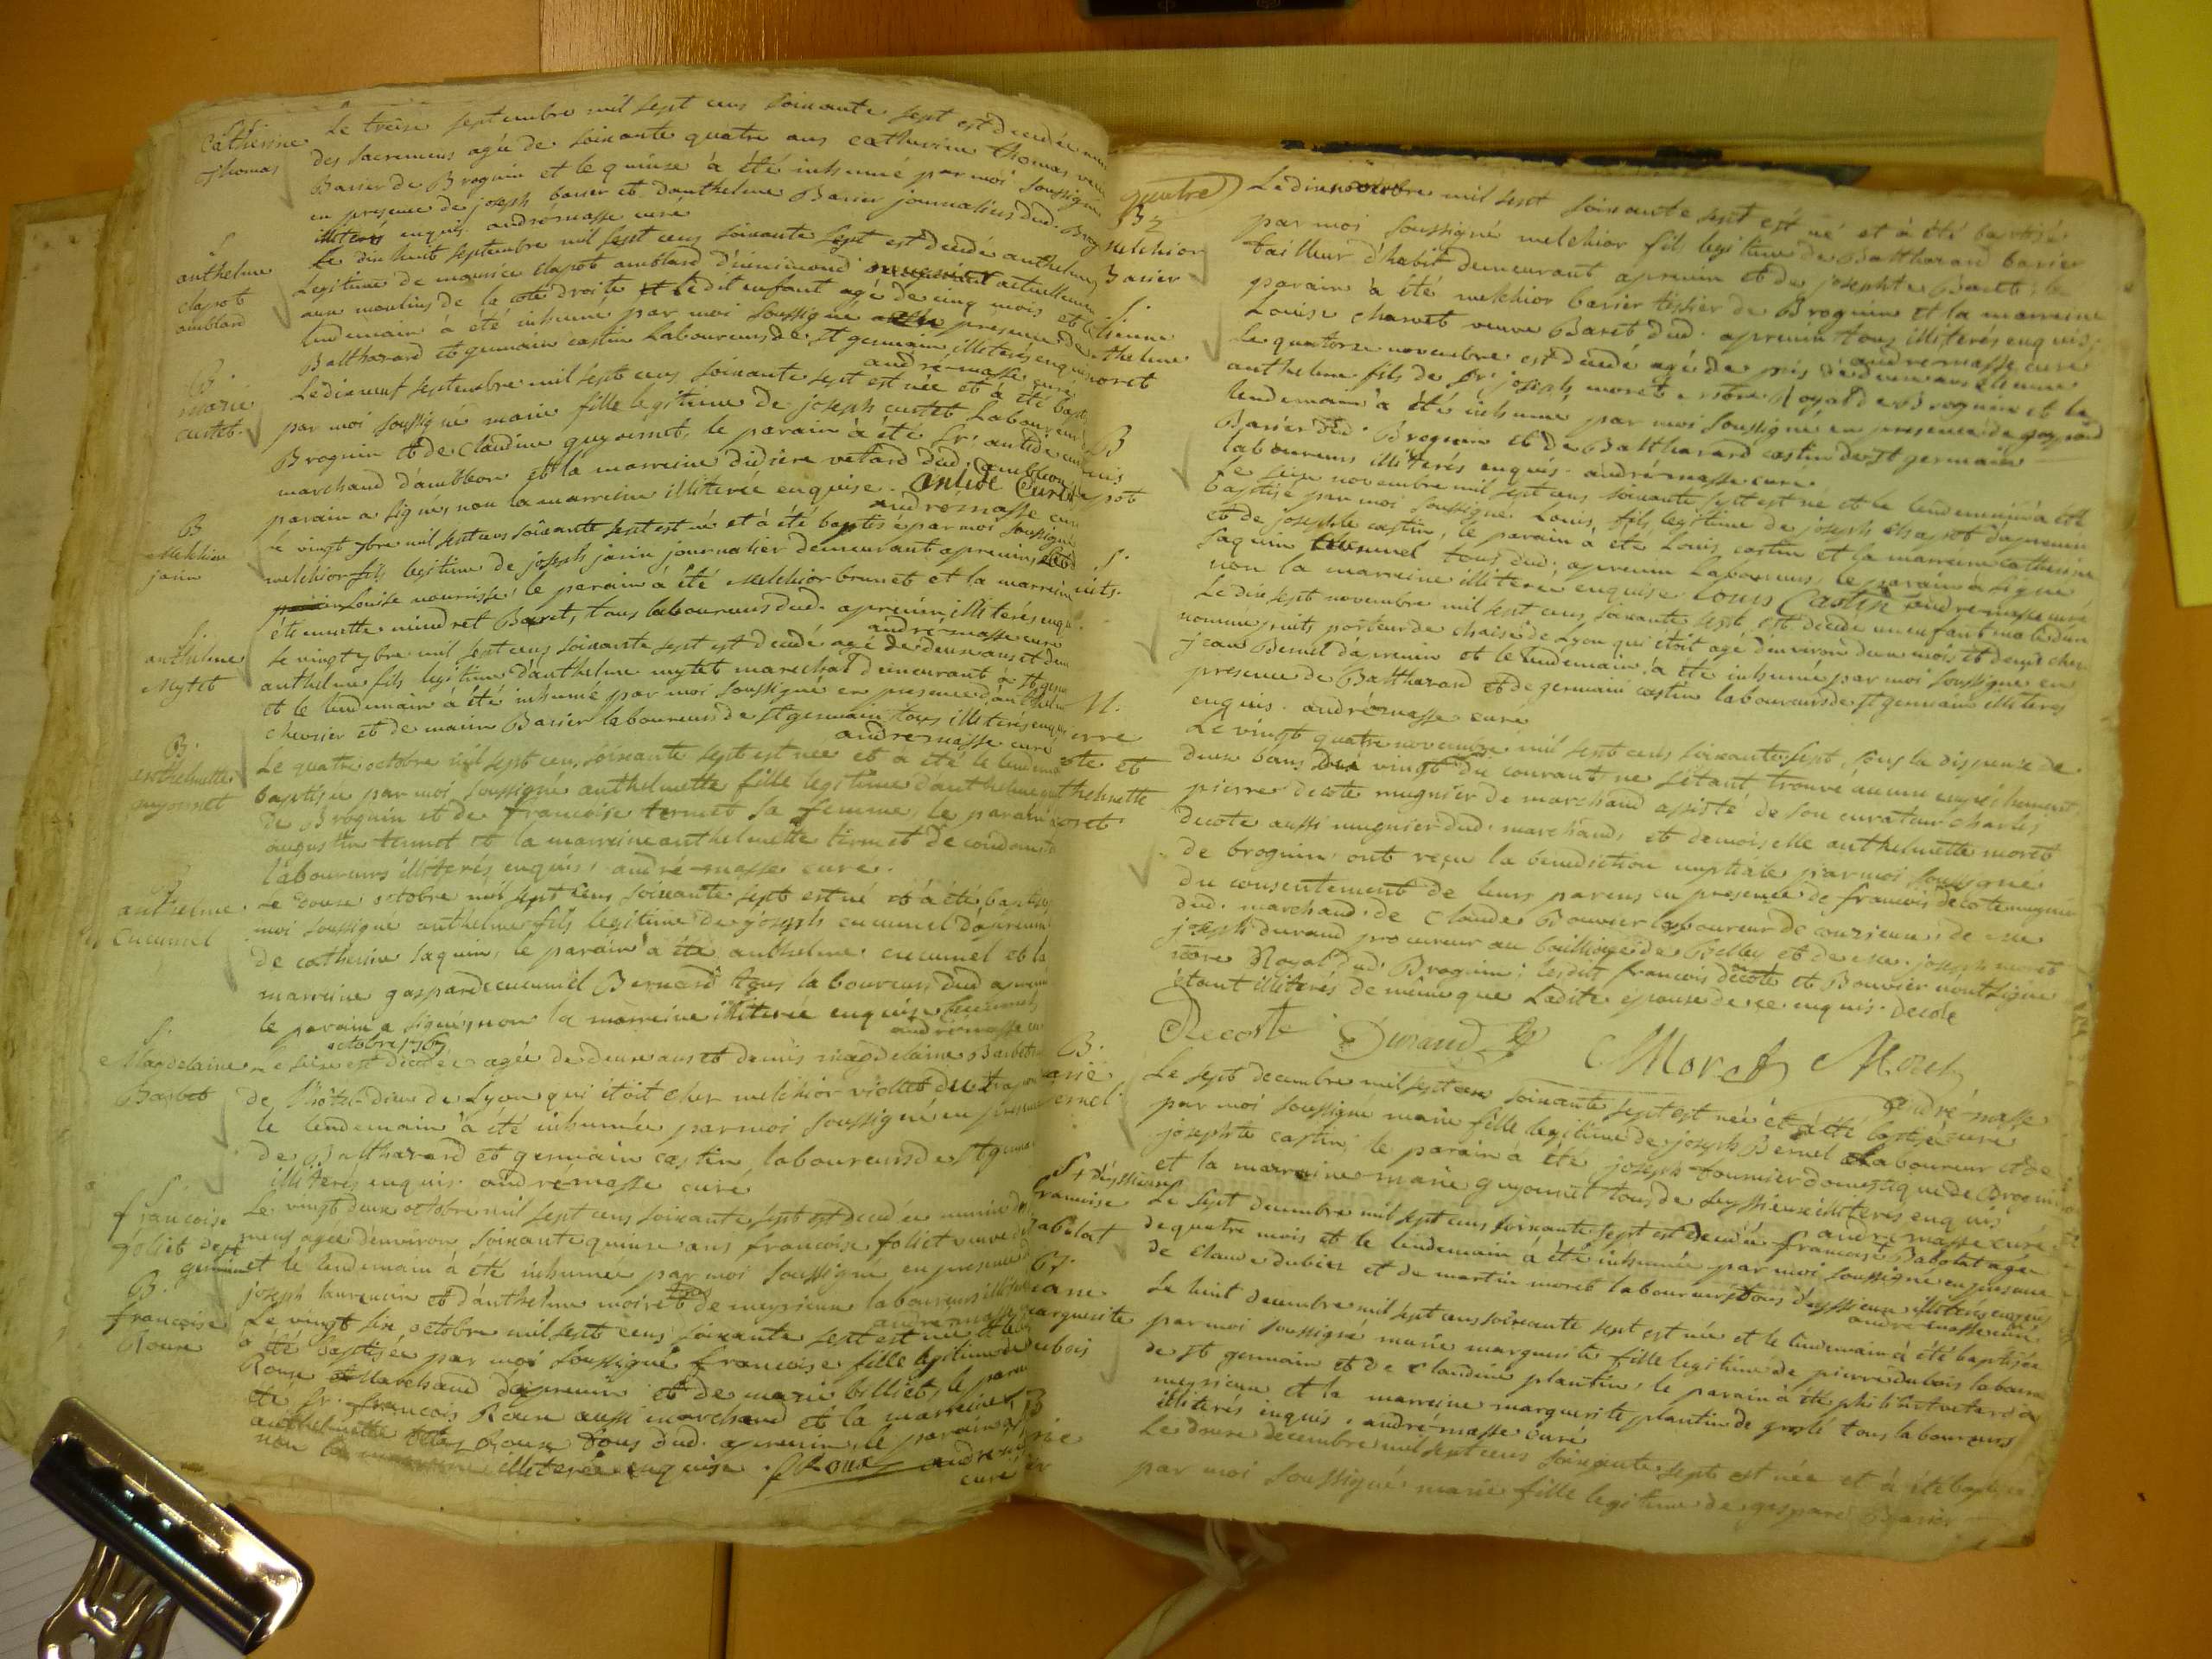 Catherine
thomas
Le treise septembre mil sept cens soixante sept est decedée
des sacremens agée de soixante quatre ans catherine thomas
Barier de Brognin et le quinze à été inhumé par moi soussigné
en presence de joseph barier et d'anthelme Barier journaliers dud.
illiterés enquis. andré masse curé
anthelme
clapot
amblard
Le dix huit septembre mil sept cens soixante sept est decedé anthelme
legitime de maurice clapot amblard actuellement
aux moulins de la cote droite et ledit enfant agé de cinq mois et le
lendemain à été inhumé par moi soussigné presence de
Balthazard et germain castin Laboureurs de st germain illiterés enquis
andré masse curé
B.
marie
curtet
Le dixneuf septembre mil sept cens soixante sept est née et à été
par moi soussigné marie fille legitime de joseph curtet Laboureur
Brognin et de Claudine guyonnet, le parain à été Sr. antide
marchand d'ambleon et la marreine didiere vetard dud. ambleon
parain a signé, non la marreine illiterée enquise. Antide Curtet
andré masse curé
B
Melchior
janin
le vingt 7bre mil sept cens soixante sept est né et à été baptisé par moi soussigné
melchior fils legitime de joseph janin journalier demeurant a premin
Louise nourrisse, le parain à été Melchior brunet et la marreine
étiennette Baret, tous laboureurs dud. apremin illiterés enquis
andré masse curé
S.
anthelme
Mytet
Le vingt 7bre mil sept cens soixante sept est decedé agé de deux ans et demi
anthelme fils legitime d'anthelme mytet marechal demeurant a st
et le lendemain à été inhumé par moi soussigné en presence d'anthelme
chevrier et de Barier laboureurs de st germain tous illiterés enquis
andré masse curé
B.
anthelmette
guyonnet
Le quatre octobre mil sept cens soixante sept est née et à été le lendemain
baptisée par moi soussigné anthelmette fille legitime d'anthelme
de Brognin et de francoise termet sa femme, le parain
augustin termet et la marreine anthelmette termet de
laboureurs illiterés enquis, andré masse curé.
B
anthelme
cucumel
Le douze octobre mil sept cens soixante sept est né et à été baptisé
moi soussigné anthelme fils legitime de joseph cucumel d'apremin
de catherine saquin, le parain à été anthelme cucumel et la
marreine gasparde cucumel Bernard tous laboureurs dud
le parain a signé, non la marreine illiterée enquise
andré masse
S.
Magdelaine
Barbet
octobre 1767
Le seize est decedée agée de deux ans et demis magdelaine Barbet
de l'hôtel-dieu de Lyon qui étoit cher melchior violet
le lendemain à été inhumée par moi soussigné en presence
de Balthazard et germain castin laboureurs de st
illiterés enquis. andré masse curé
S.
francoise
foliet de st
germain
Le vingt deux octobre mil sept cens soixante sept est decedée
agée d'environ soixante quinze ans francoise foliet veuve
et le lendemain à été inhumée par moi soussigné en presence
joseph laurencin et d'anthelme moiret tous de meyrieux laboureurs
andré masse
B.
francoise
Roux
Le vingt six octobre mil sept cens soixante sept est née et
à été baptisée par moi soussigné francoise fille legitime de
Roux Marchand d'apremin et de marie billiet, le parain
été Sr. francois Roux aussi marchand et la marreine
anthelmette Roux tous dud. apremin, le parain
non la marreine illiterée enquise. Roux andré
curé
quatre
B
Melchior
Barier
Le dix novembre mil sept soixante sept est né et à été baptisé
par moi soussigné melchior fils legitime de Balthazard barier
tailleur d'habit demeurant apremin et de josephte Baret, le
parain à été melchior barier tissier de Brognin et la marreine
Louise charvet veuve Baret dud. apremin tous illiterés enquis,
andré masse curé
S.
étienne
anthelme
moret
Le quatorze novembre est decedé agé de près de deux ans étienne
anthelme fils de Sr. joseph moret notre Royal de Brognin et le
lendemain à été inhumé par moi soussigné en presence de gaspard
Barier dud. Brognin et de Balthazard castin de st germain
laboureurs illiterés enquis. andré masse curé
B
Le novembre mil sept cens soixante sept est né et le lendemain à été
baptisé par moi soussigné Louis fils legitime de joseph chapot d'apremin
et de josephte castin, le parain à été Louis castin et la marreine catherine
saquin cucumel tous dud. apremin laboureurs, le parain à signé
non la marreine illiterée enquise. Louis Castin andré masse curé
S.
Le dix sept novembre mil sept cens soixante sept est decedé un enfant male d'un
nommé juits porteur de chaise de Lyon qui étoit agé d'environ deux mois et demi cher
jean Bernel d'apremin et le lendemain à été inhumé par moi soussigné en
presence de Balthazard et de germain castin laboureurs de st germain illiterés
enquis. andré masse curé
M.
pierre
decote et
anthelmette
moret
Le vingt quatre novembre mil sept cens soixante sept, sous la dispense de
deux bans du vingt du courant ne s'étant trouvé aucun empêchement,
pierre decote mugnier de marchand assisté de son curateur charles
decote aussi mugnier dud. marchand, et demoiselle anthelmette moret
de brognin, ont reçu la benediction nuptiale par moi soussigné
du consentement de leurs parens en presence de francois decote mugnier
dud. marchand, de Claude Bouvier laboureur de couzieux, de Me
joseph durand procureur au bailliage de Belley et de Me. joseph moret
notre Royal dud. Brognin; lesdits francois decote et Bouvier nont signé
étant illiterés de même que Ladite epouse de ce enquis. decote
Decoste Durand Moret Moret
andré masse
curé
B.
marie
Bernel
Le sept decembre mil sept cens soixante sept est née et à été baptisée
par moi soussigné marie fille legitime de joseph Bernel Laboureur et de
josephte castin, le parain à été joseph tournier domestique de Brognin
et la marreine marie guyonnet tous de seyssieux illiterés enquis
andré masse curé
S. + d'eyssieux
francoise
Babolat
Le sept decembre mil sept cens soixante sept est decedée francoise Babolat agée
de quatre mois et le lendemain à été inhumée par moi soussigné en presence
de Claude dubiez et de martin moret laboureurs tous d'eyssieux illiterés enquis
andré masse curé
B.
marguerite
dubois
Le huit decembre mil sept cens soixante sept est née et le lendemain à été baptisée
par moi soussigné marie marguerite fille legitime de pierre dubois laboureur
de st germain et de Claudine plantin, le parain à été philibert vetard de
meyrieux et la marreine marguerite plantin de groslé tous laboureurs
illiterés enquis, andré masse curé
B
Le douze decembre mil sept cens soixante sept est née et à été baptisée
par moi soussigné marie fille legitime de gaspard Barier